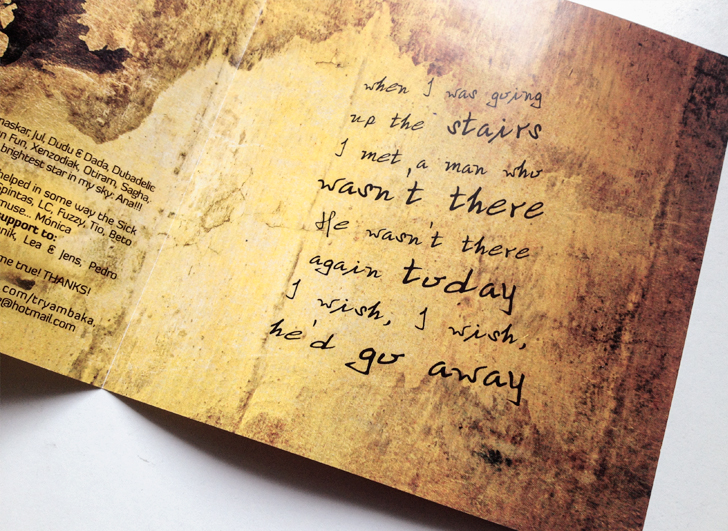 naskar, Jul, Dudu & Dada, Dubadelic
n Fun, Xenzodiak, Otiram, Sagha,
brightest star in my sky: Ana!!!
helped in some way the Sick
Spintas, LC, Fuzzy, Tio, Beto
muse... Mónica
support to:
nik, Lea & Jens, Pedro
me true! THANKS!
com/tryambaka,
@hotmail.com
when I was going
up the stairs
I met, a man who
wasn't there
He wasn't there
again today
I wish, I wish,
he'd go away